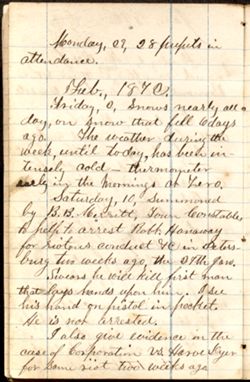 Monday, 23, 28 pupils in
attendance.
Feb., 1870.
Friday, snows nearly all
day, on snow that fell 6 days
ago. The weather during the
week, until today, has been in-
tensely cold – thermometer
early in the mornings at Zero.
Saturday, 10, Summoned
by B.B. Merritt, Town Constable,
to help to arrest Robt. Hanaway
for riotous conduct &C in
burg two weeks ago, the 27th Jan.
Swears he will kill first man
that lays hands upon him. I see
his hand on pistol in pocket.
He is not arrested.
I also give evidence in the
case of Corporation vs.
for same riot two weeks ago